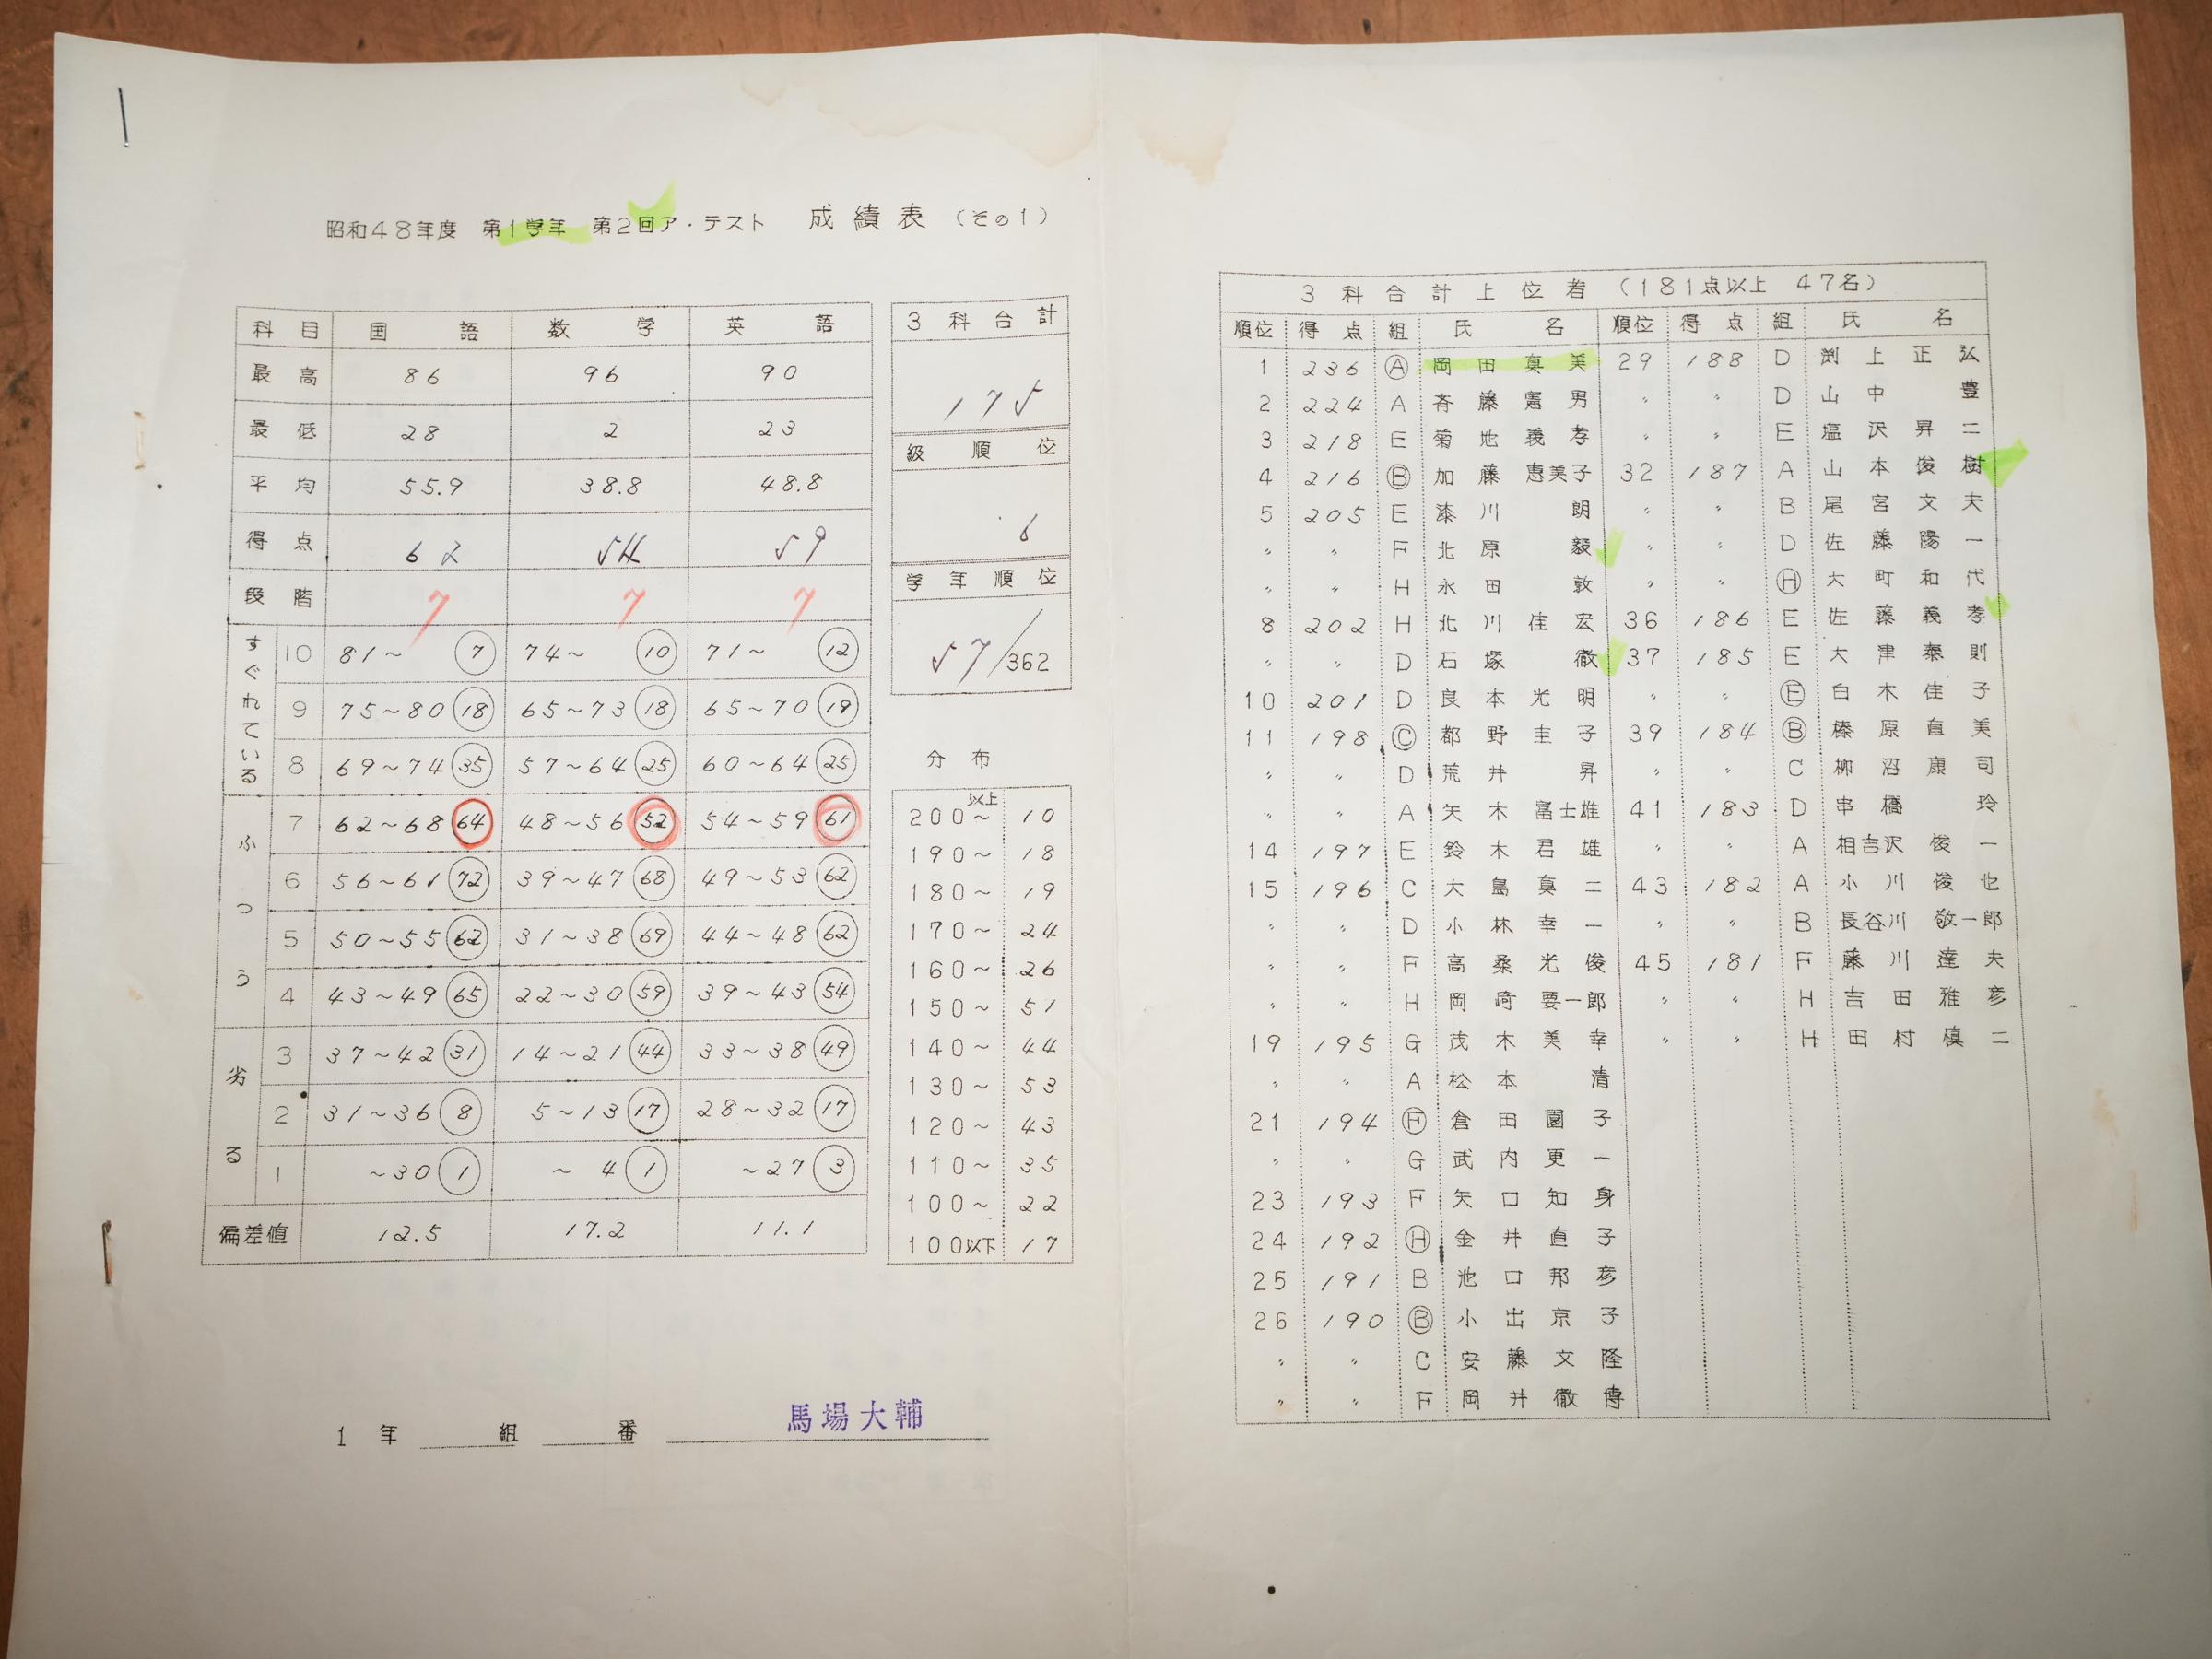 昭和48年度 第1学年 第2回ア・テスト 成績表 (その1)
科目 国語 数学 英語
最高 86 96 90
最低 28 2 23
平均 55.9 38.8 48.8
得点 62 54 59
段階 7 7 7
すぐれている
10 81~ 7 74~ 10 71~ 12
9 75~80 18 65~73 18 65~70 19
8 69~74 35 57~64 25 60~64 25
ふつう
7 62~68 64 48~56 52 54~59 61
6 56~61 72 39~47 68 49~53 62
5 50~55 62 31~38 69 44~48 62
4 43~49 65 22~30 59 39~43 54
劣る
3 37~42 31 14~21 44 33~38 49
2 31~36 8 5~13 17 28~32 17
1 ~30 1 ~4 1 ~27 3
偏差値 12.5 17.2 11.1
3科合計
175
級順位
6
学年順位
57/362
分布
200以上~ 10
190~ 18
180~ 19
170~ 24
160~ 26
150~ 51
140~ 44
130~ 53
120~ 43
110~ 35
100~ 22
100以下 17
1年 組 番 馬場大輔
3科合計上位者 (181点以上 47名)
順位 得点 組 氏名
1 236 Ⓐ 岡田真美
2 224 A 斉藤憲男
3 218 E 菊地義孝
4 216 Ⓑ 加藤恵美子
5 205 E 漆川朗
〃 〃 F 北原毅
〃 〃 H 永田敦
8 202 H 北川佳宏
〃 〃 D 石塚徹
10 201 D 良本光明
11 198 Ⓒ 都野圭子
〃 〃 D 荒井昇
〃 〃 A 矢木富士雄
14 197 E 鈴木君雄
15 196 C 大島真二
〃 〃 D 小林幸一
〃 〃 F 高桑光俊
〃 〃 H 岡崎要一郎
19 195 G 茂木美幸
〃 〃 A 松本清
21 194 Ⓕ 倉田園子
〃 〃 G 武内更一
23 193 F 矢口知身
24 192 Ⓗ 金井直子
25 191 B 池口邦彦
26 190 Ⓑ 小出京子
〃 〃 C 安藤文隆
〃 〃 F 岡井徹博
順位 得点 組 氏名
29 188 D 渕上正弘
〃 〃 D 山中豊
〃 〃 E 塩沢昇二
32 187 A 山本俊樹
〃 〃 B 尾宮文夫
〃 〃 D 佐藤陽一
〃 〃 Ⓗ 大町和代
36 186 E 佐藤義孝
37 185 E 大津泰則
〃 〃 Ⓔ 白木佳子
39 184 Ⓑ 榛原直美
〃 〃 C 柳沼康司
41 183 D 串橋玲
〃 〃 A 相吉沢俊一
43 182 A 小川俊也
〃 〃 B 長谷川敬一郎
45 181 F 藤川達夫
〃 〃 H 吉田雅彦
〃 〃 H 田村槙二